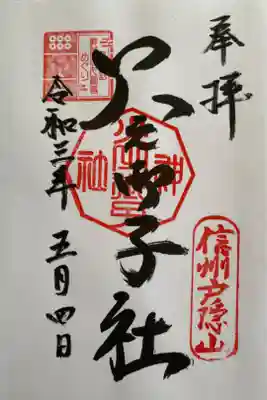 奉拝
信州戸隠山
火之御子社
令和三年 五月四日